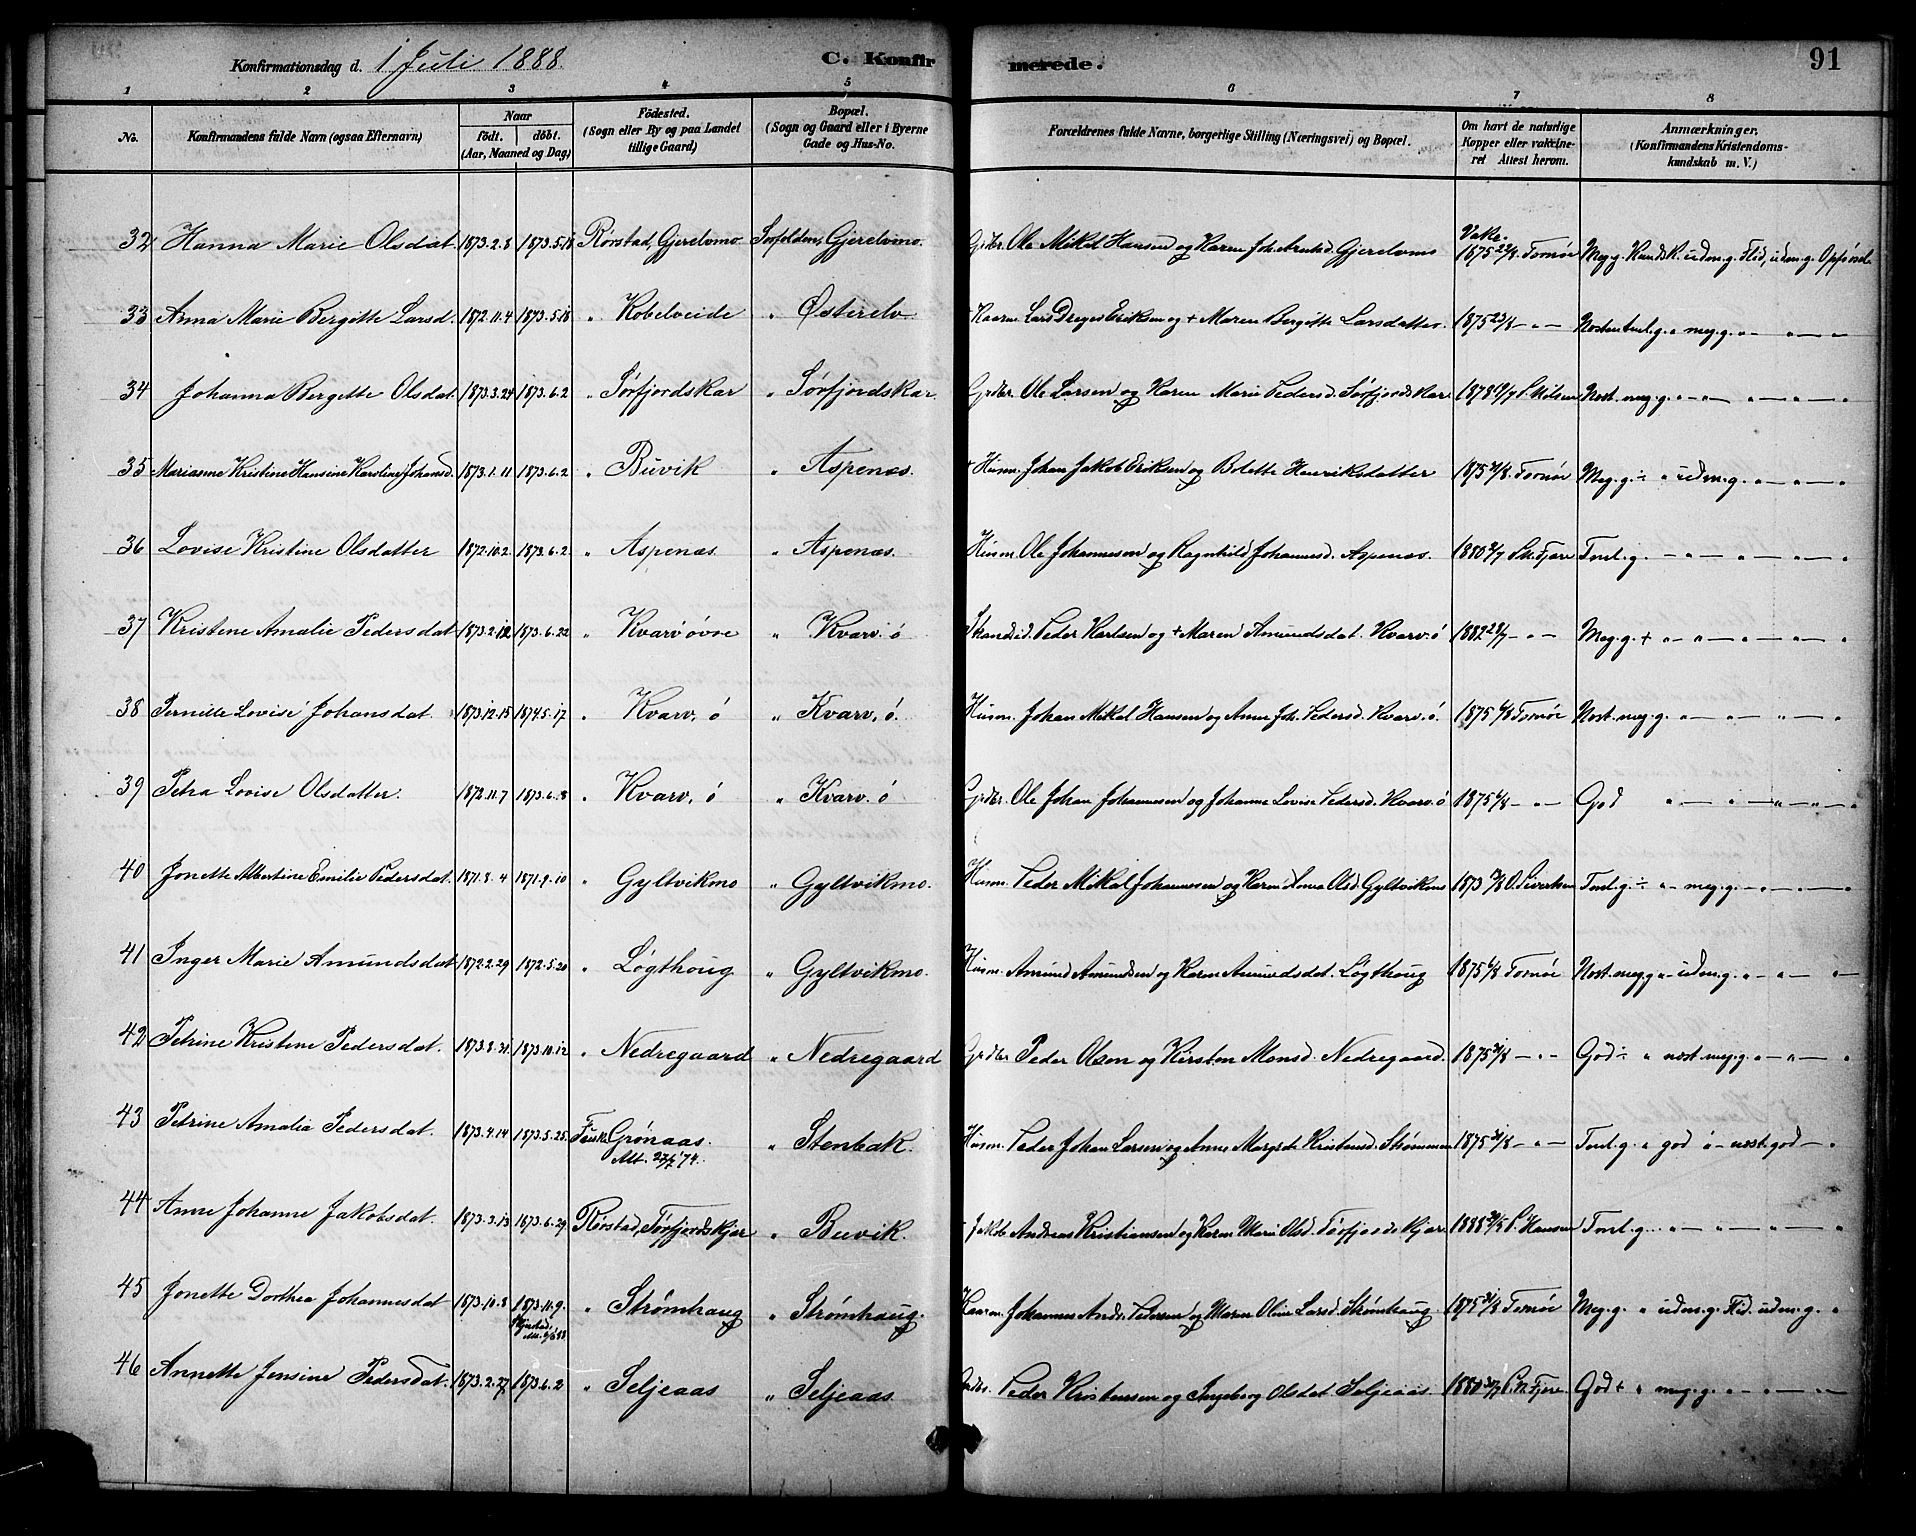 Konfirmationsdag d. 1 Juli 1888. C. Konfirmerede. 91
1 2 3 4 5 6 7 8
No. Konfirmandens fulde Navn (ogsaa Efternavn) Naar født. døbt. (Aar, Maaned og Dag) Fødested. (Sogn eller By og paa Landet tillige Gaard) Bopæl. (Sogn og Gaard eller i Byerne Gade og Hus-No. Forældrenes fulde Navne, borgerlige Stilling (Næringsvei) og Bopæl. Om havt de naturlige Kopper eller vakcineret Attest herom. Anmærkninger. (Konfirmandens Kristendomskundskab m. V.)
32 Hanna Marie Olsdat 1873.2.8 1873.5.18 Rørstad, Gjerelvmo Sørfolden, Gjerelvmo. Grdbr. Ole Mikal Hansen og Karen Joh. Arntsd. Gjerelvmo Vakc. 1875 22/8 Tornøe Meg.g. Kundsk. udm.g. Flid, udm.g. Opførsel
33 Anna Marie Bergitte Larsd. 1872.11.4 1873.5.18 " Kobelveide " Østerelv + Kaarm. Lars Dreyer Eriksen og + Maren Bergitte Larsdatter. 1875 23/8 — " — Næsten tml.g. " meg.g. " — " — " — "
34 Johanna Bergette Olsdat. 1873.3.24 1873.6.2 " Sørfjordskar " Sørfjordskar. Grdbr. Ole Larsen og Karen Marie Pedersd. Sørfjordskar 1878 19/7 P. Nilsen Næst. meg.g. " — " — " — " — "
35 Marianne Kristine Hansine Karoline Johansd. 1873.1.11 1873.6.2 " Buvik " Aspenæs. + Husm. Johan Jakob Eriksen og Bolette Henriksdatter 1875 31/8. Tornøe Meg.g. ÷ " udm.g. " — " — "
36 Lovise Kristine Olsdatter 1872.10.2. 1873.6.2 " Aspenæs " Aspenæs. Husm. Ole Johannesen og Ragnhild Johannesd. Aspenæs. 1880 2/7 P.N. Fjære Tml.g. — " — " — " — " — "
37 Kristene Amalie Pedersdat 1873.2.12 1873.6.22 " Kvarv øvre " Kvarv. ø Peder Karlsen og + Maren Amundsdat. Kvarv. ø 1882 28/7 — " — Meg.g. + " — " — " — " — "
38 Pernille Lovise Johansdat. 1873.12.15 1874.5.17 " Kvarv, ø " Kvarv, ø. Husm. Johan Mikal Hansen og Anne Joh. Pedersd. Kvarv. ø. 1875 6/8 Tornøe Næst. meg.g. " — " — " — "
39 Petra Lovise Olsdatter. 1872.11.7 1873.6.8 " Kvarv, ø " Kvarv. ø Grdbr. Ole Johan Johannesen og Johanne Lovise Pedersd. Kvarv. ø 1875 6/8 — " — God " — " — " — " — "
40 Jonette Albertine Emilie Pedersdat. 1871.8.4 1871.9.10 " Gyltvikmo " Gyltvikmo. Husm. Peder Mikal Johannesen og Karen Anna Olsd. Gyltvikmo 1873 O. Sivertsen Tml.g. ÷ " — meg.g. — " — " — "
41 Inger Marie Amundsdat. 1872.2.29 1872.5.20 " Løgthoug " Gyltvikmo. Husm. Amund Amundsen og Karen Amundsdat. Løgthoug 1875 6/8 Tornøe Næst. meg.g " — udm.g. " — " — "
42 Petrine Kristene Pedersdat. 1873.8.31. 1873.10.12 " Nedregaard " Nedregaard Grdbr Peder Olsen og Kirsten Monsd. Nedregaard. 1875 31/8 — " — God ÷ " næst meg.g. " — " — "
43 Petrine Amalia Pedersdat. 1873.4.14 1873.5.25. Fauske Grønaas. Att. 27/7 '74. " Stenbak. Husm. Peder Johan Larsen og Anne Margrete Kristensd. Strømmen 1875 31/8 — " — Tml.g. " god " — næst. god — "
44 Anne Johanne Jakobsdat. 1873.3.13 1873.6.29 Rørstad, Tørfjordskjar " Buvik. + Jakob Andreas Kristiansen og Karen Marie Olsd. Tørfjordskjar 1888 30/5 P. Hansen Tml.g. " — " — " — " — "
45 Jonette Dorthea Johannesdat 1873.10.8 1873.11.9. " Strømhaug " Strømhaug. Kaarm. Johannes Andr. Pedersen og Maren Oline Larsd. Strømhaug 1875 31/8 Tornøe Meg.g. " udm.g. Flid. udm.g. "
46 Annette Jensine Pedersdat. 1873.2.27 1873.6.2 " Seljeaas " Seljeaas. Grdbr. Peder Kristensen og Ingeborg Olsdat Seljeaas 1880 P.N. Fjære God + " meg.g. " — " — " — "